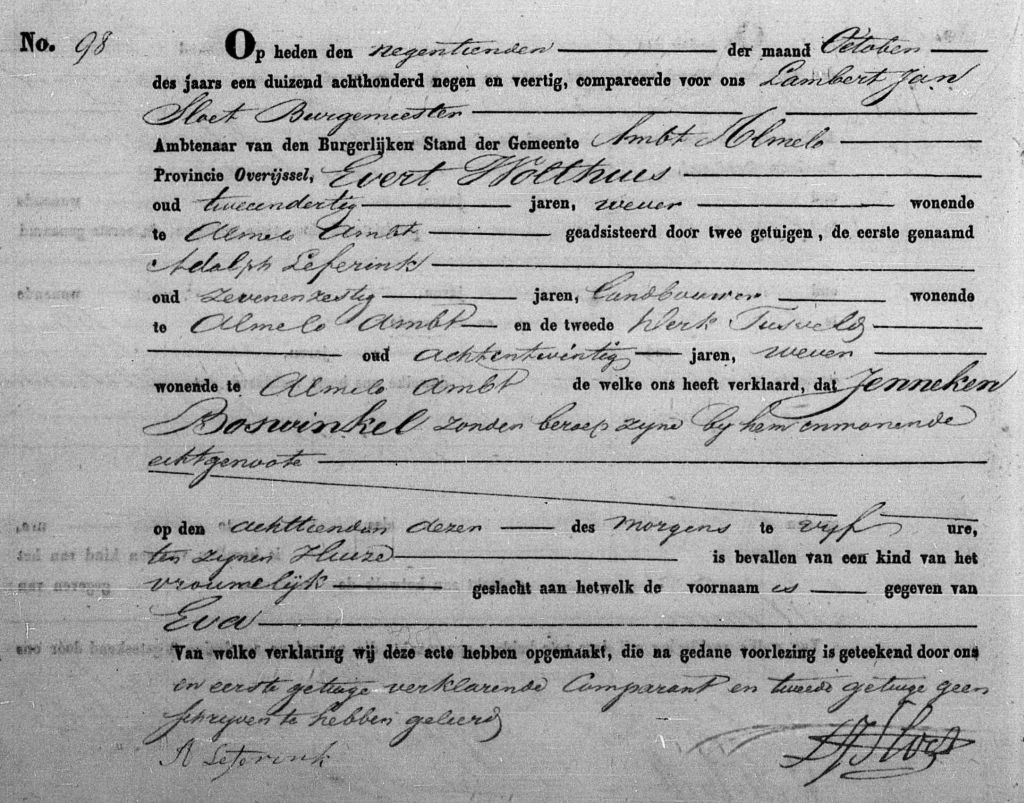 No. 98 Op heden den negentienden der maand October
des jaars een duizend achthonderd negen en veertig, compareerde voor ons Lambert Jan
Sloet Burgemeester
Ambtenaar van den Burgerlijken Stand der Gemeente Ambt Almelo
Provincie Overijssel, Evert Wolthuis
oud tweeendertig jaren, wever wonende
te Almelo Ambt geadsisteerd door twee getuigen, de eerste genaamd
Adolph Leferink
oud zevenenzestig jaren, landbouwer wonende
te Almelo Ambt en de tweede Derk Tusveld
oud achtentwintig jaren, wever
wonende te Almelo Ambt de welke ons heeft verklaard, dat Jenneken
Boswinkel zonder beroep zijne by hem inwonende
echtgenoote
op den achttienden dezer des morgens te vyf ure,
ten zijnen Huize is bevallen van een kind van het
vrouwelijk geslacht aan hetwelk de voornaam is gegeven van
Eva
Van welke verklaring wij deze acte hebben opgemaakt, die na gedane voorlezing is geteekend door ons
en eerste getuige verklarende Comparant en tweede getuige geen
schryven te hebben geleerd
A Leferink LJSloet